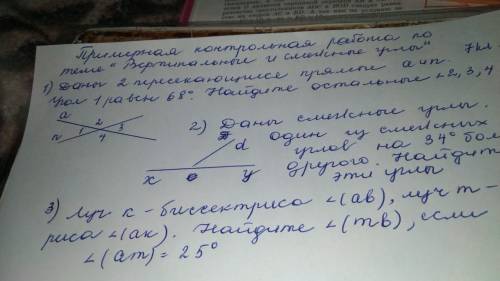 Примерная контрольная работа по
теме "Вертикальные и смежные углы"
1) Даны 2 пересекающиеся прямые a и n.
Угол 1 равен 68°. Найдите остальные ∠2,3,4
a
2
1
3
n
4
2) Даны смежные углы.
один из смежных
углов на 34° бол
другого. Найдите
эти углы
d
x
o
y
3) Луч к - биссектриса ∠(ab), луч m -
риса ∠(ак). Найдите ∠(mb), если
∠(am) = 25°